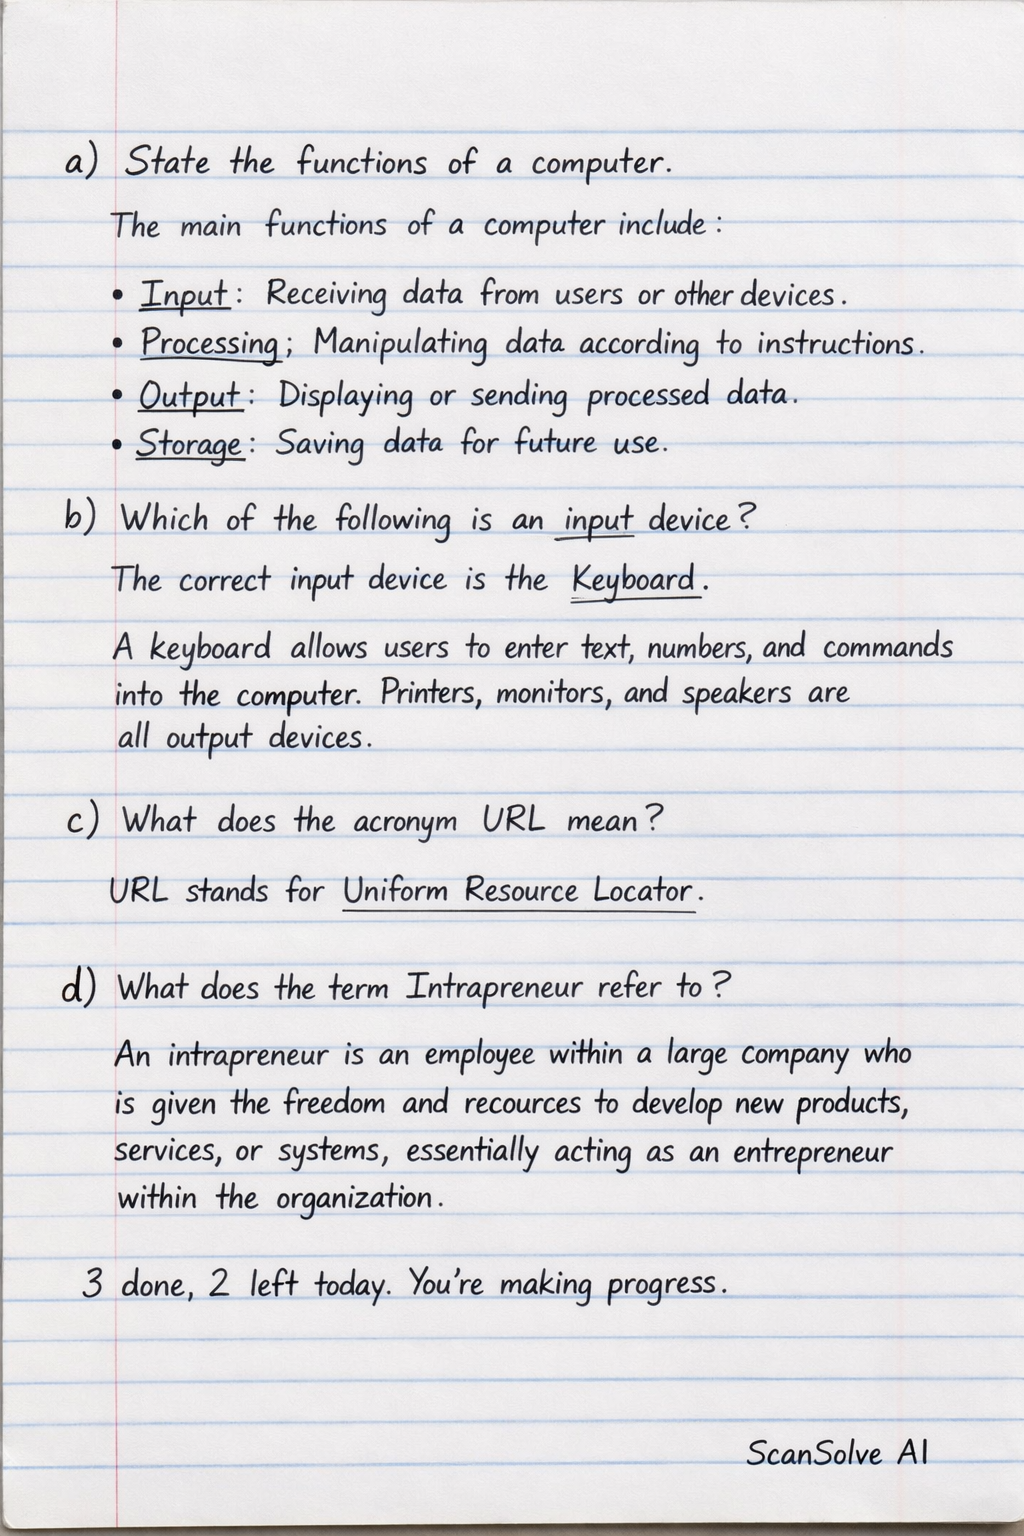 a) State the functions of a computer.
The main functions of a computer include:
• Input: Receiving data from users or other devices.
• Processing; Manipulating data according to instructions.
• Output: Displaying or sending processed data.
• Storage: Saving data for future use.
b) Which of the following is an input device?
The correct input device is the Keyboard.
A keyboard allows users to enter text, numbers, and commands
into the computer. Printers, monitors, and speakers are
all output devices.
c) What does the acronym URL mean?
URL stands for Uniform Resource Locator.
d) What does the term Intrapreneur refer to?
An intrapreneur is an employee within a large company who
is given the freedom and recources to develop new products,
services, or systems, essentially acting as an entrepreneur
within the organization.
3 done, 2 left today. You're making progress.
ScanSolve AI